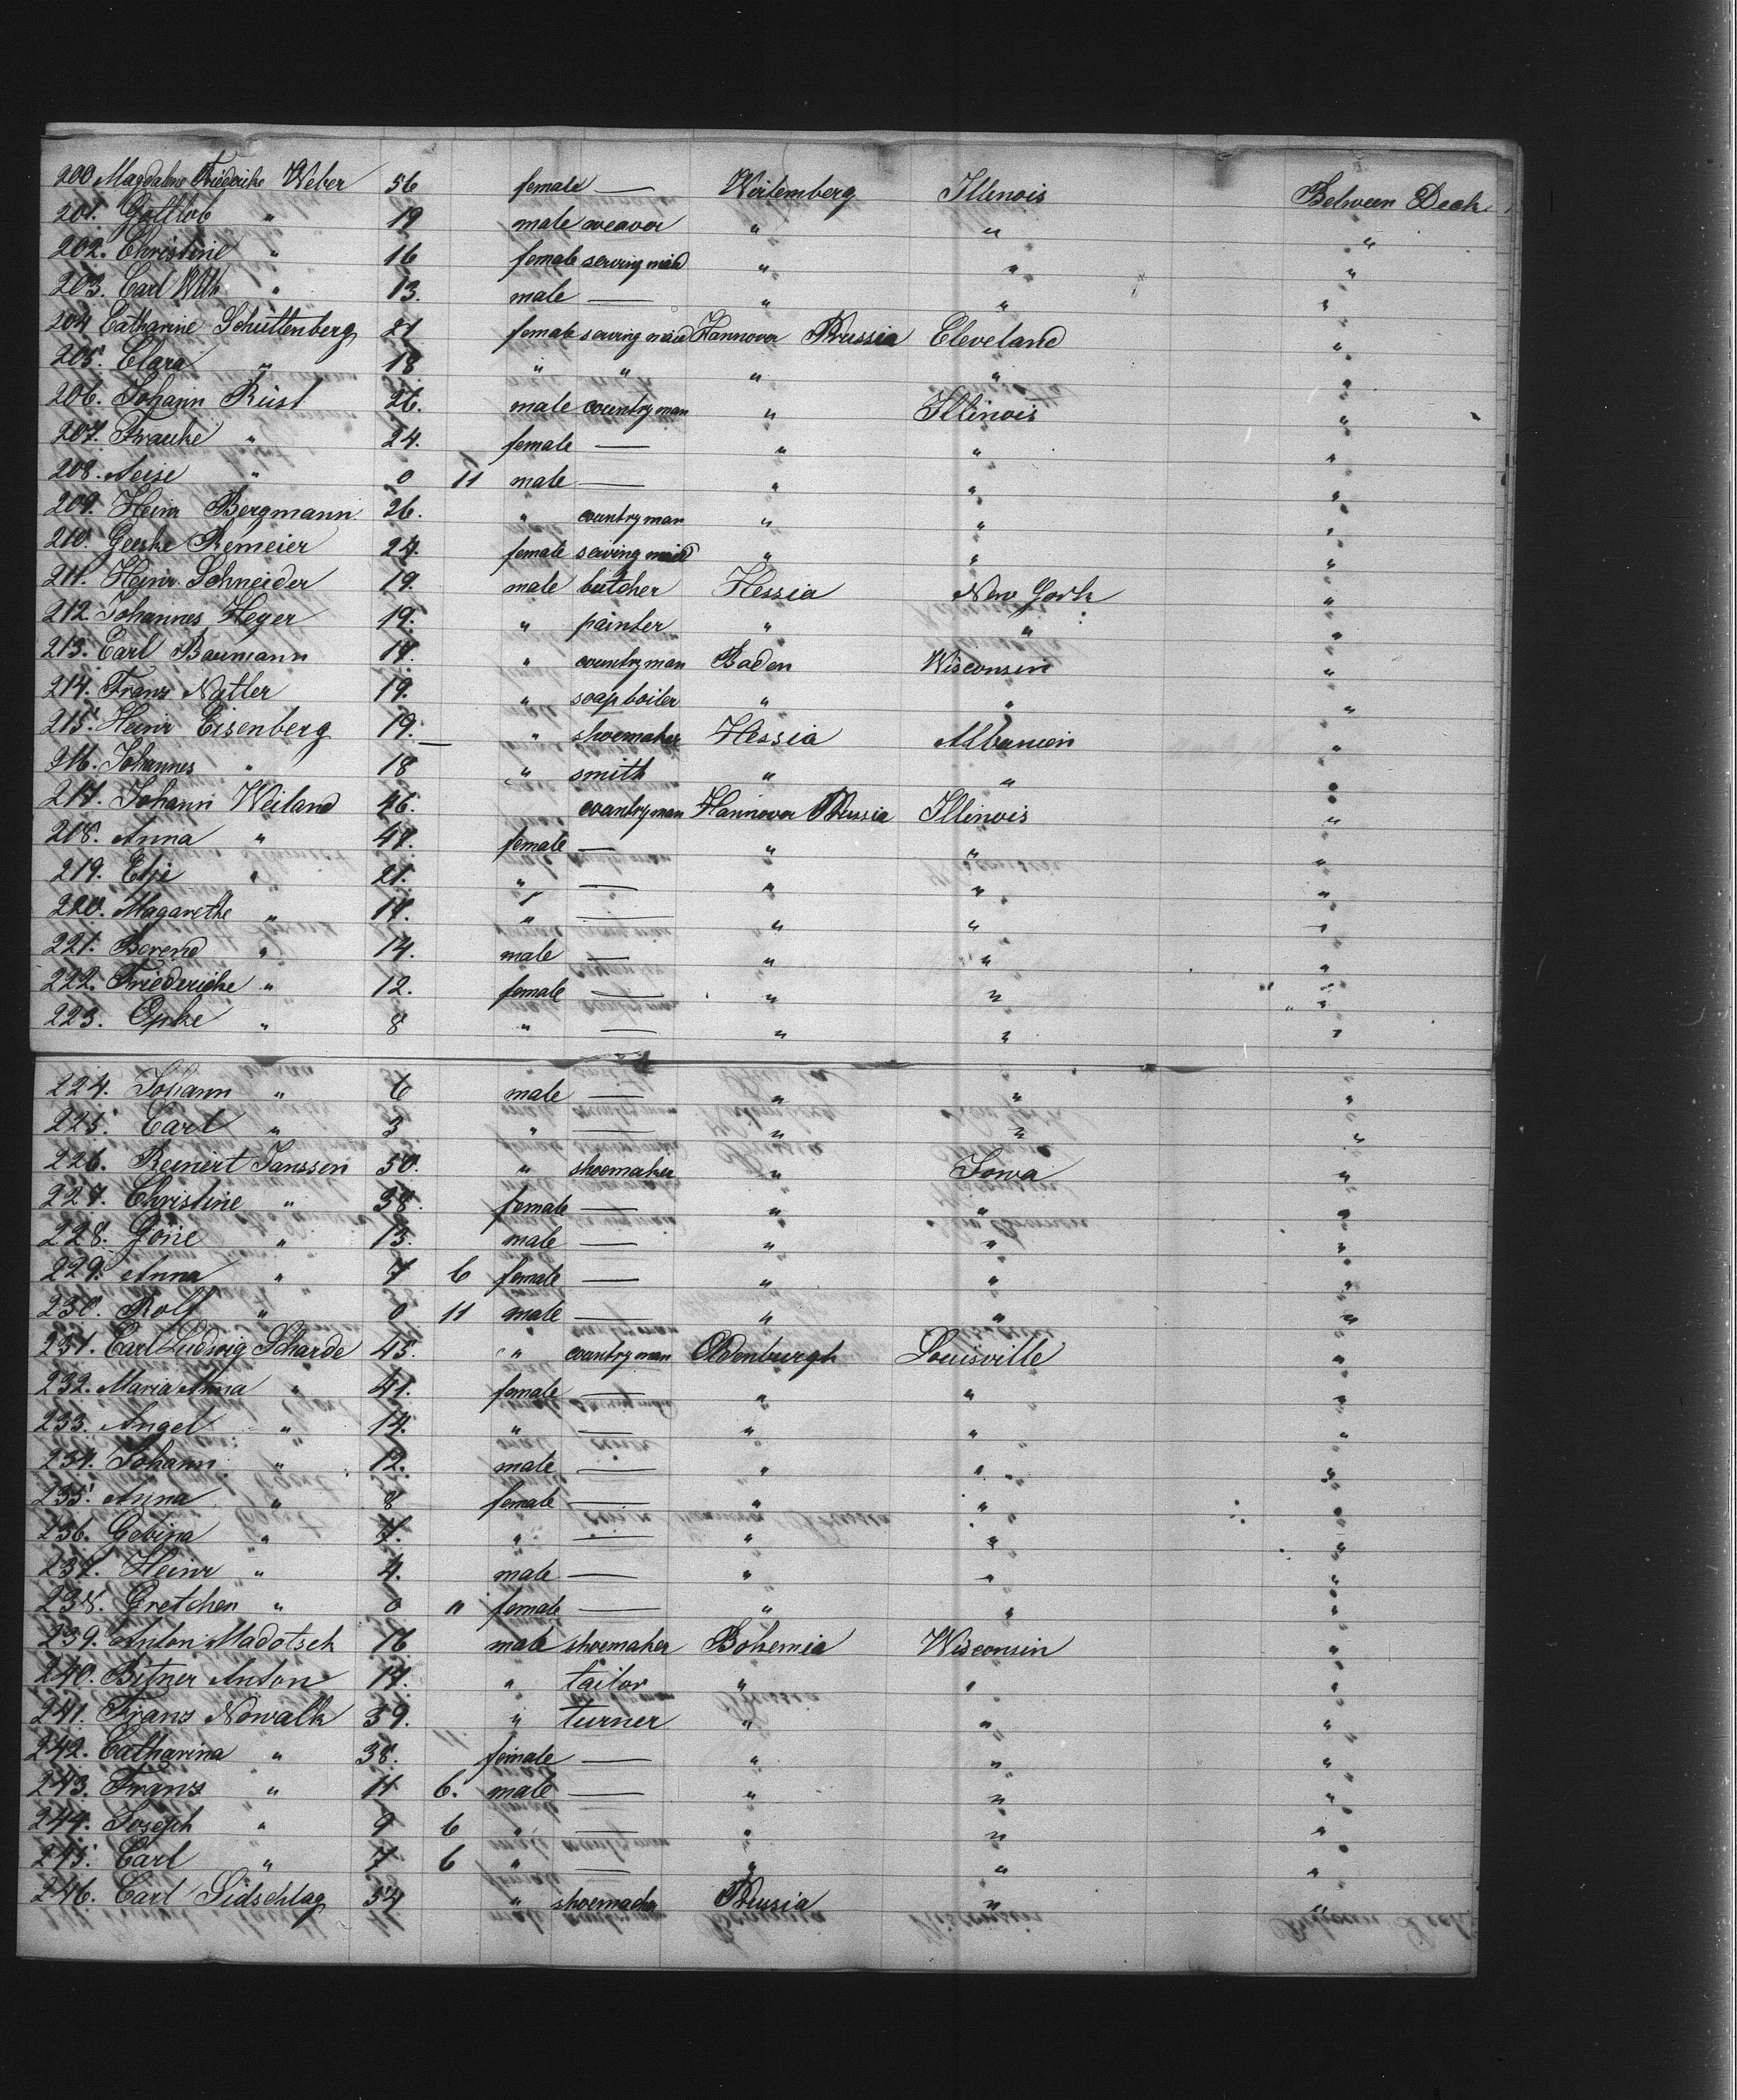 200 Magdalene Friederike Weber 56 female — Würtemberg Illinois Between Deck
201. Gottlob " 19 male weavor " " "
202. Christine " 16 female serving maid " " "
203. Carl Wilh " 13. male — " " "
204 Catharine Schüttenberg 21 female serving maid Hannover Prussia Cleveland "
205. Clara " 18 " " " " "
206. Johann Rüst 26. male countryman " Illinois "
207. Frauke " 24. female — " " "
208. Neise " 0 11 male — " " "
209. Heinr Bergmann 26. " countryman " " "
210. Geeske Remeier 24. female serving maid " " "
211. Heinr. Schneider 19. male butcher Hessia New York "
212. Johannes Heger 19. " painter " " "
213. Carl Baumann 17. " countryman Baden Wisconsin "
214. Franz Natler 19. " soapboiler " " "
215. Heinr Eisenberg 19. " shoemaker Hessia "
216. Johannes " 18 " smith " " "
217. Johann Weiland 46. countryman Hannover Prussia Illinois "
218. Anna " 47. female — " " "
219. Elje " 21. " — " " "
220. Magarethe " 17. " — " " "
221. Berend " 14. male — " " "
222. Friederieke " 12. female — " " "
223. Opke " 8 " — " " "
224. Johann " 6 male — " " "
225. Carl " 3 " — " " "
226. Reinert Janssen 50. " shoemaker " Iowa "
227. Christine " 38. female — " " "
228. Görie " 13. male — " " "
229. Anna " 7 6 female — " " "
230. Rolf " 0 11 male — " " "
231. Carl Ludwig Scharde 45. " countryman Oldenburgh Louisville "
232. Maria Anna " 41. female — " " "
233. Angel " 14. " — " " "
234. Johann " 12. male — " " "
235. Anna " 8 female — " " "
236. Gebina " 7. " — " " "
237. Heinr " 4. male — " " "
238. Gretchen " 0 11 female — " " "
239. Anton Madotsch 16 male shoemaker Bohemia Wisconsin "
240. Bitner Anton 17. " tailor " " "
241. Franz Nowalk 39. " turner " " "
242. Catharina " 38. female — " " "
243. Franz " 11 6. male — " " "
244. Joseph " 9 6 " — " " "
245. Carl " 7 6 " — " " "
246. Carl Sidschlag 54 " shoemacher Prussia " "